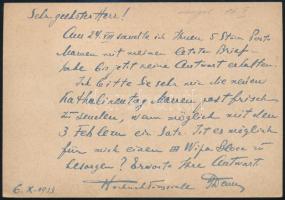 Sehr geehrter Herr!
Am 24. VIII sandte ich Ihnen 5 Stück Post
Marken mit meinen letzten Brief
habe bis jetzt keine Antwort erhalten.
Ich bitte Sie sehr mir die neuen
Katholikentag Marken, postfrisch
zu senden, wenn möglich mit den
3 Fehlern ein Satz. Ist es möglich
für mich einen Wipa Block zu
besorgen? Erwarte Ihre Antwort
Hochachtungsvoll
6. X. 1933